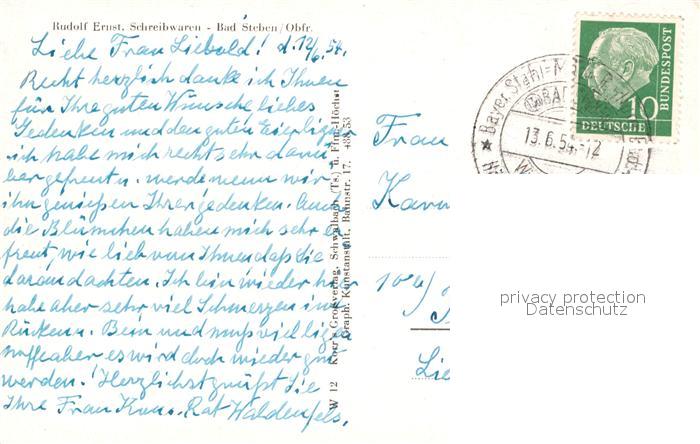 Rudolf Ernst, Schreibwaren - Bad Steben/Obfr.
Liebe Frau Liebold! d. 12/6. 54.
Recht herzlich danke ich Ihnen
für Ihre guten Wünsche liebes
Gedenken und den guten Eierligör
ich habe mich recht sehr darü
ber gefreut u. werde wenn wir
ihn genießen Ihrer gedenken. Auch
die Blümchen haben mich sehr er
freut, wie lieb von Ihnen daß Sie
daran dachten. Ich bin wieder hier
habe aber sehr viel Schmerzen im
Rücken u. Bein und muß viel liegen
hoffe aber es wird doch wieder gut
werden! Herzlichst grüßt Sie
Ihre Frau Rat Waldenfels.
W 12 Korr's Großverlag, Schwalbach (Ts.) u. Ffm.-Höchst
Graph. Kunstanstalt, Bahnstr. 17. 438/53
Frau
DEUTSCHE
BUNDESPOST
10
Bayer. Stahl=
BAD
13.6.54.-12
privacy protection
Datenschutz